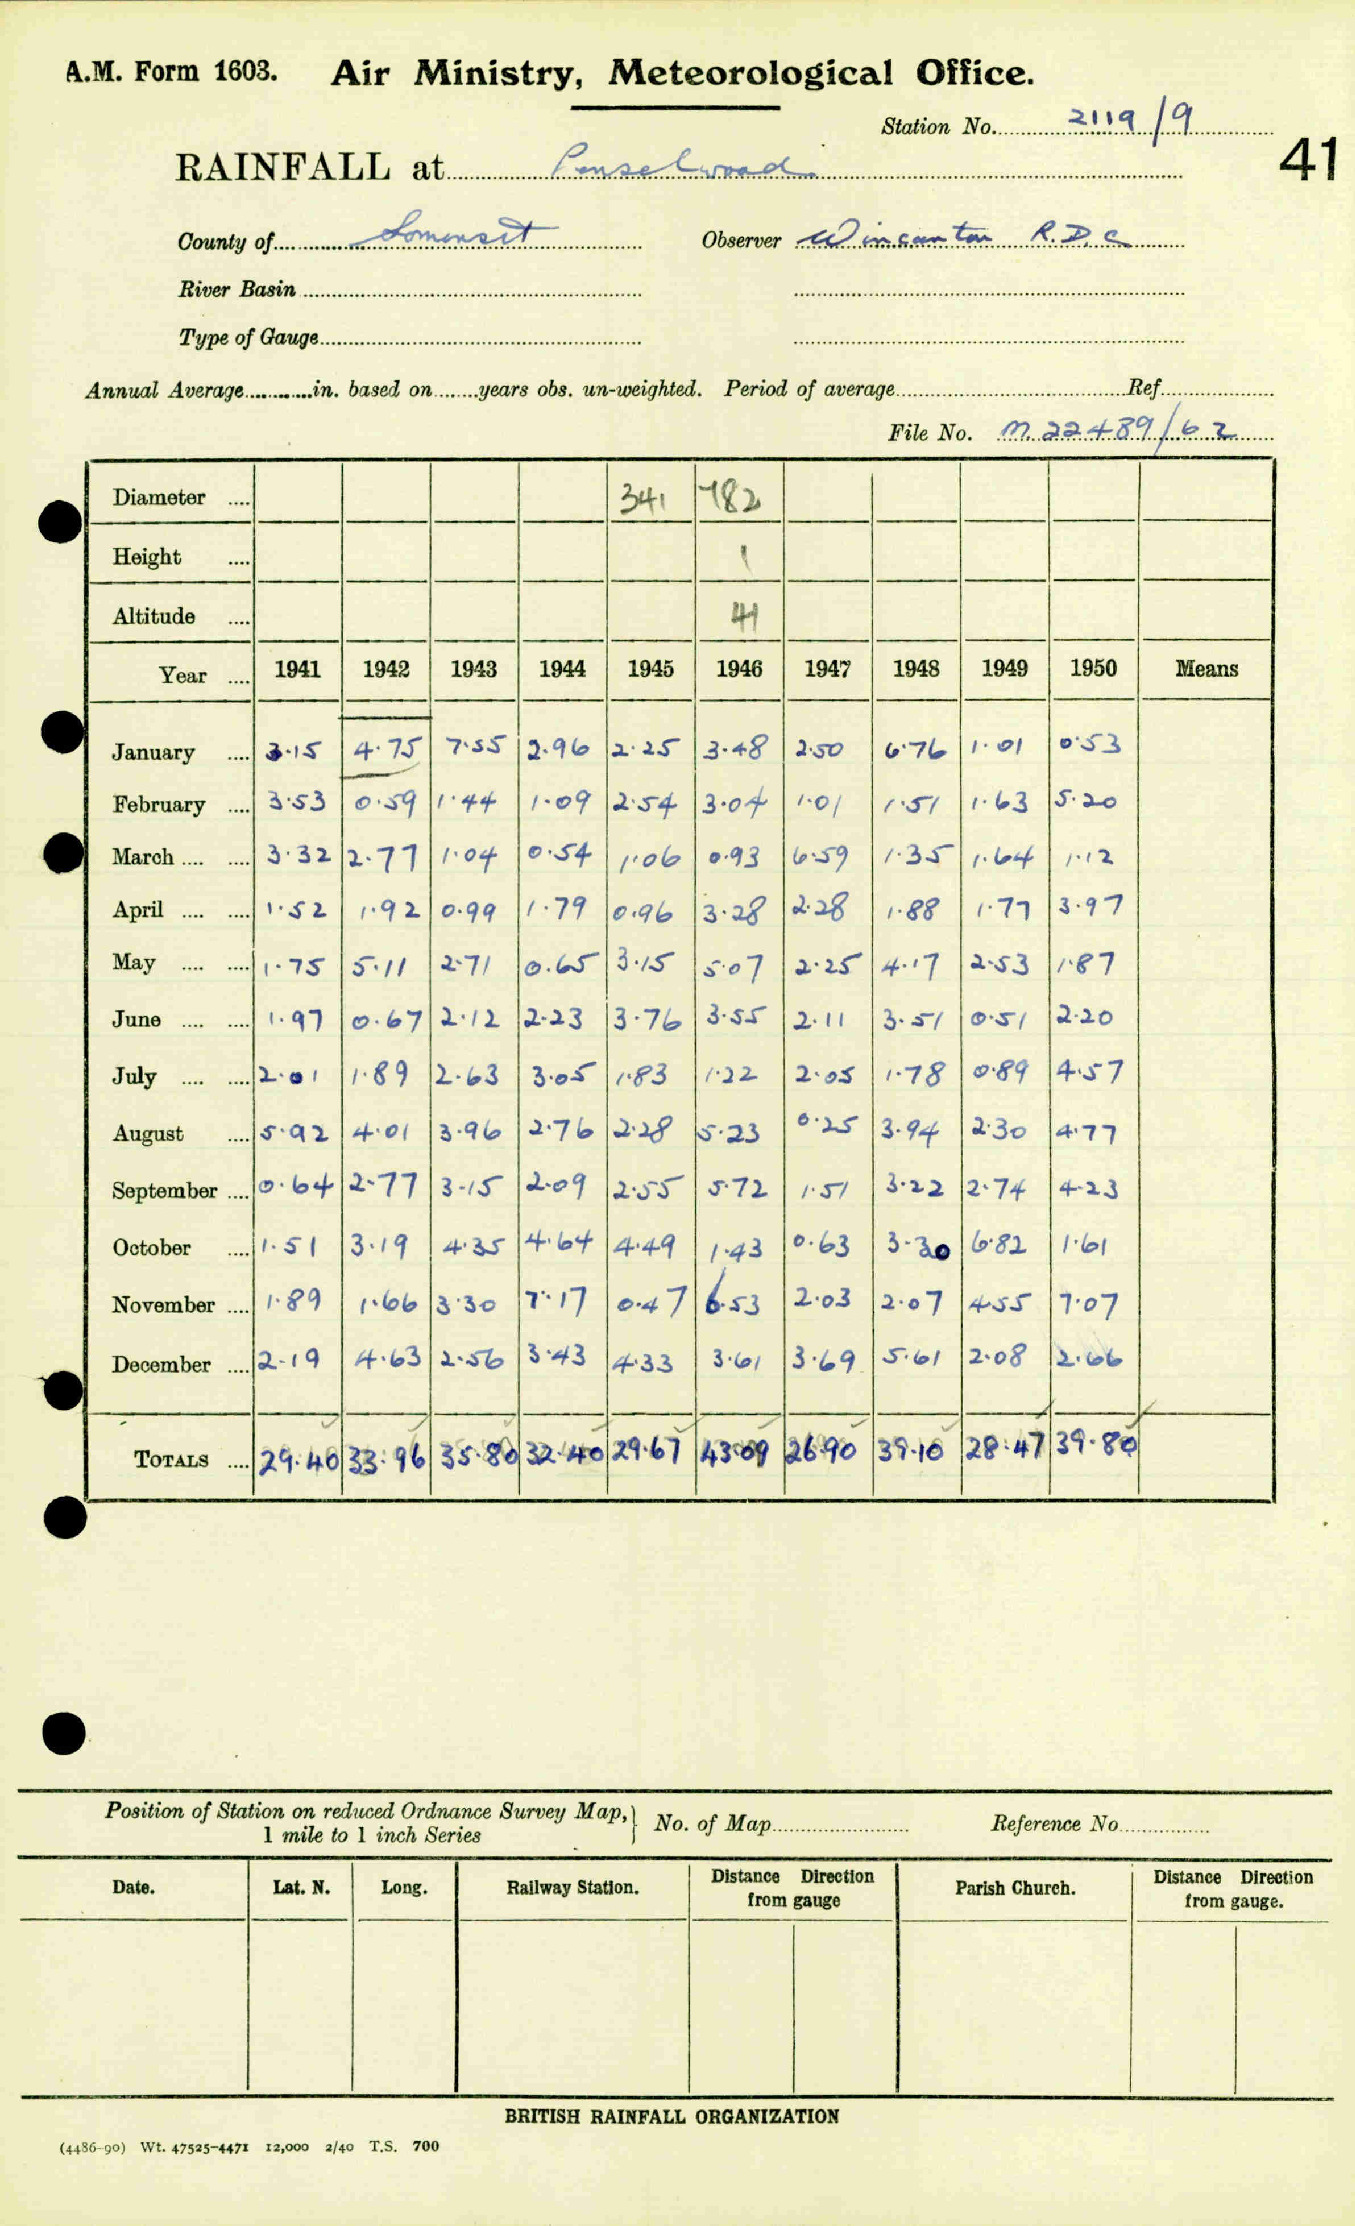 A.M. Form 1603. Air Ministry, Meteorological Office.
Station No. 2119/9
41
RAINFALL at Penselwood
County of Somerset Observer Wincanton R.D.C
River Basin
Type of Gauge
Annual Average in. based on years obs. un-weighted. Period of average Ref.
File No. M 22489/62
Diameter 341 782
Height 1
Altitude 41
Year 1941 1942 1943 1944 1945 1946 1947 1948 1949 1950 Means
January 3.15 4.75 7.55 2.96 2.25 3.48 2.50 6.76 1.01 0.53
February 3.53 0.59 1.44 1.09 2.54 3.04 1.01 1.51 1.63 5.20
March 3.32 2.77 1.04 0.54 1.06 0.93 6.59 1.35 1.64 1.12
April 1.52 1.92 0.99 1.79 0.96 3.28 2.28 1.88 1.77 3.97
May 1.75 5.11 2.71 0.65 3.15 5.07 2.25 4.17 2.53 1.87
June 1.97 0.67 2.12 2.23 3.76 3.55 2.11 3.51 0.51 2.20
July 2.01 1.89 2.63 3.05 1.83 1.22 2.05 1.78 0.89 4.57
August 5.92 4.01 3.96 2.76 2.28 5.23 0.25 3.94 2.30 4.77
September 0.64 2.77 3.15 2.09 2.55 5.72 1.51 3.22 2.74 4.23
October 1.51 3.19 4.35 4.64 4.49 1.43 0.63 3.30 6.82 1.61
November 1.89 1.66 3.30 7.17 0.47 6.53 2.03 2.07 4.55 7.07
December 2.19 4.63 2.56 3.43 4.33 3.61 3.69 5.61 2.08 2.66
TOTALS 29.40 33.96 35.80 32.40 29.67 43.09 26.90 39.10 28.47 39.80
Position of Station on reduced Ordnance Survey Map, No. of Map Reference No.
1 mile to 1 inch Series
Date. Lat. N. Long. Railway Station. Distance Direction from gauge Parish Church. Distance Direction from gauge.
BRITISH RAINFALL ORGANIZATION
(4486-90) Wt. 47525-4471 12,000 2/40 T.S. 700